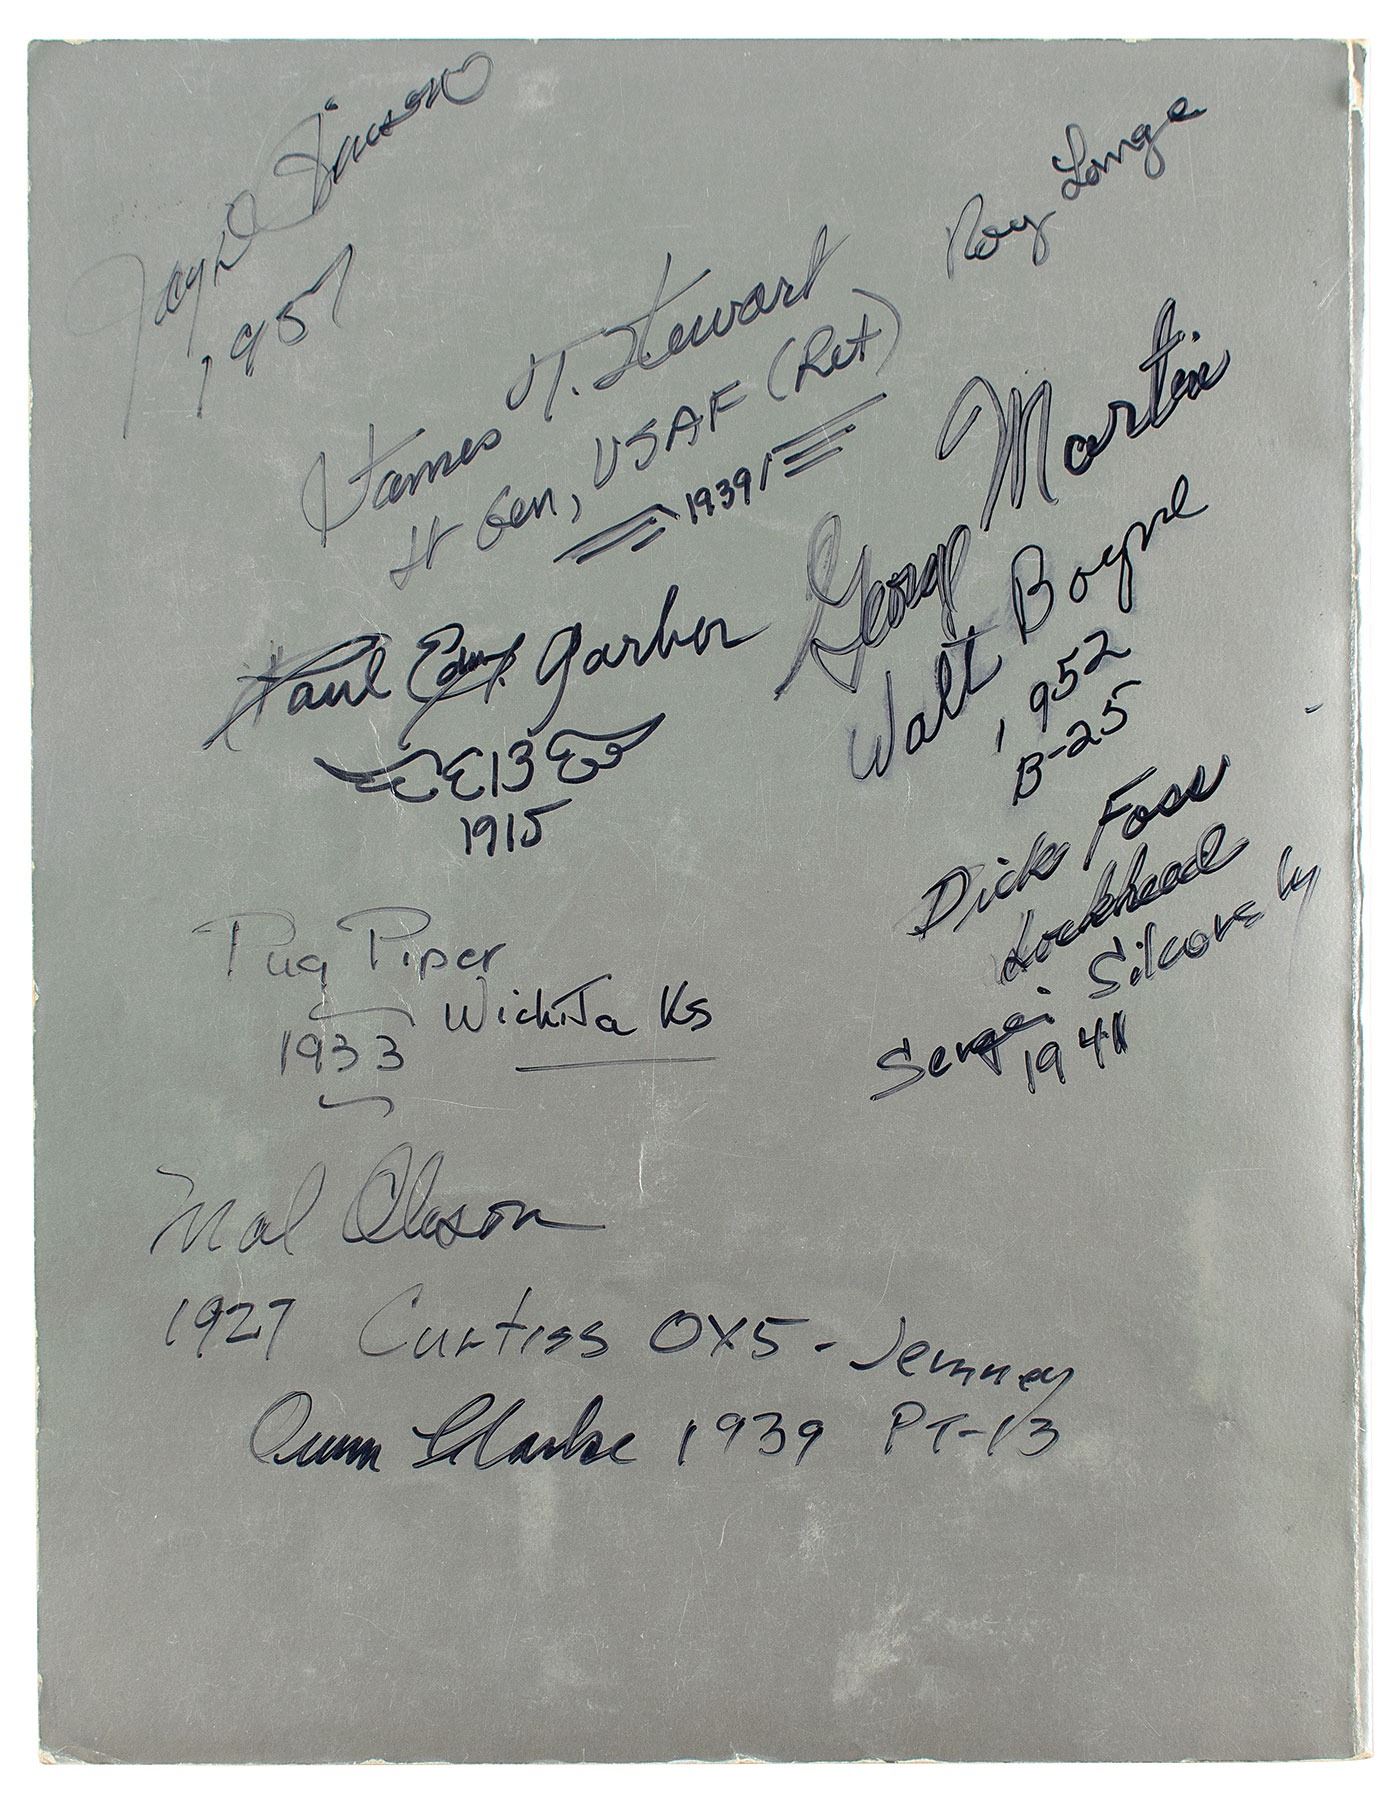 Jay D
1957
Roy Longe
James T. Stewart
Lt Gen, USAF (Ret)
1939
George Martin
Walt Boyne
1952
B-25
Paul Edw. Garber
13
1915
Dick Foss
Lockhead
Sergei Sikorsky
1941
Pug Piper
1933 Wichita Ks
Mal Oleson
1927 Curtiss OX5 - Jenney
Clarke 1939 PT-13